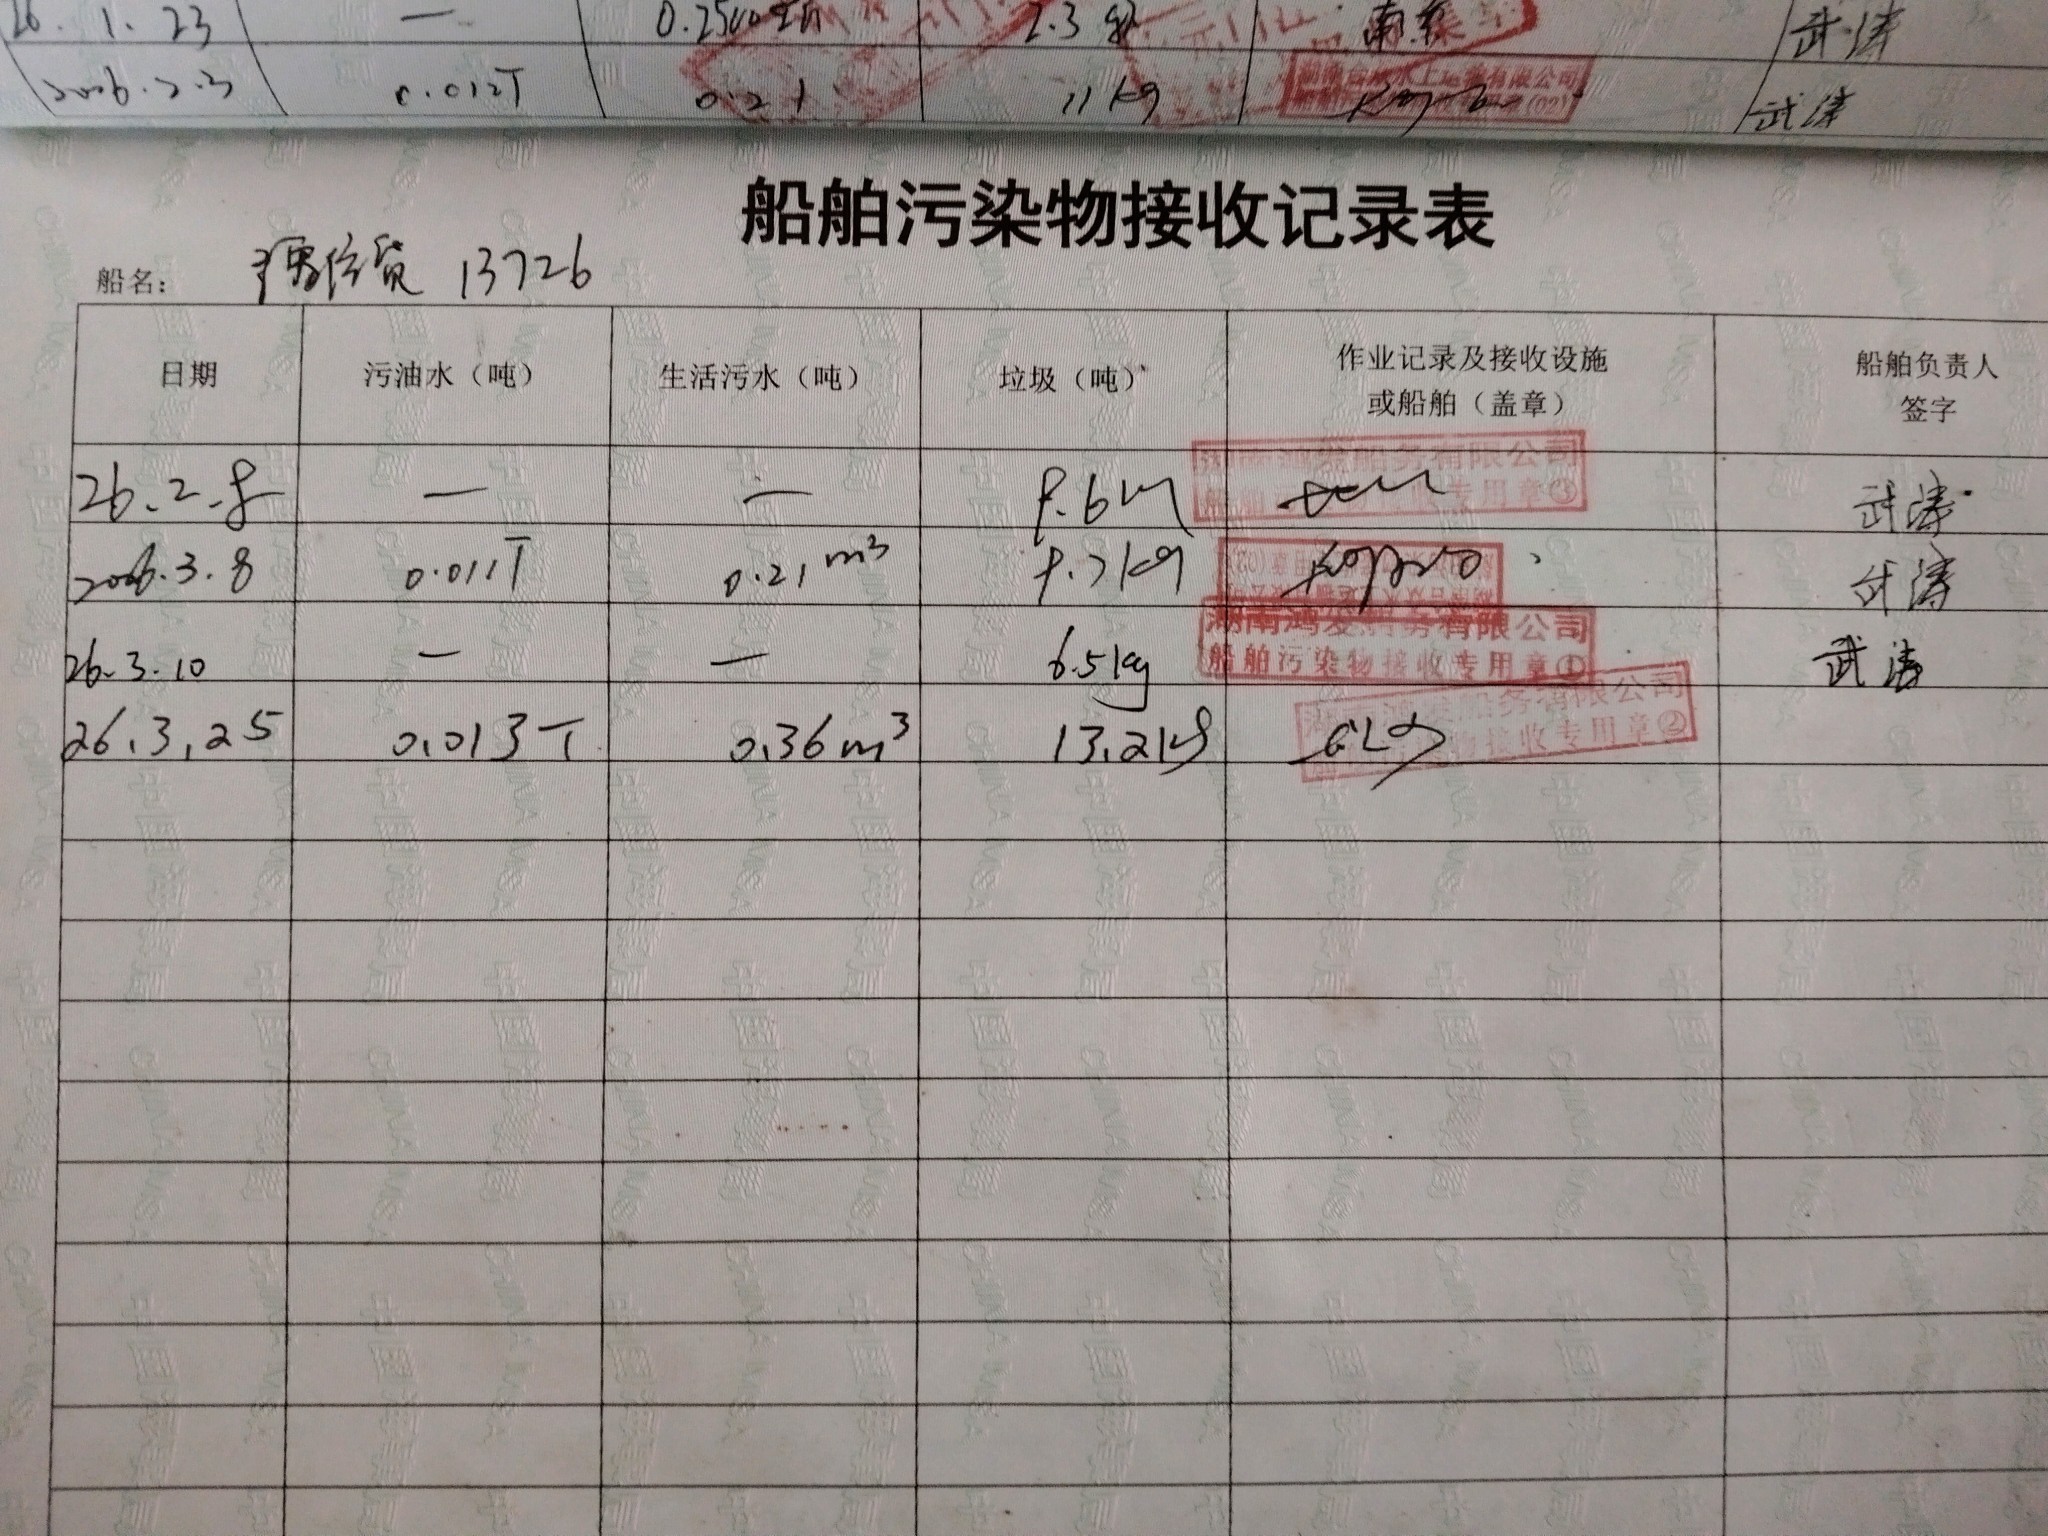 26. 1. 23 — 2.3 武涛
2026.2.3 0.012T 0.21 11kg 武涛
船舶污染物接收记录表
船名: 货 13726
日期 污油水（吨） 生活污水（吨） 垃圾（吨） 作业记录及接收设施或船舶（盖章） 船舶负责人签字
湖南鸿发船务有限公司
26.2.8 — — 船舶污染物接收专用章③ 武涛
2026.3.8 0.011T 0.21m³ 武涛
湖南鸿发船务有限公司
26.3.10 — — 6.5kg 船舶污染物接收专用章① 武涛
湖南鸿发船务有限公司
26.3.25 0.013T 0.36m³ 13.2kg 船舶污染物接收专用章②
中国海事局 CHINA MSA